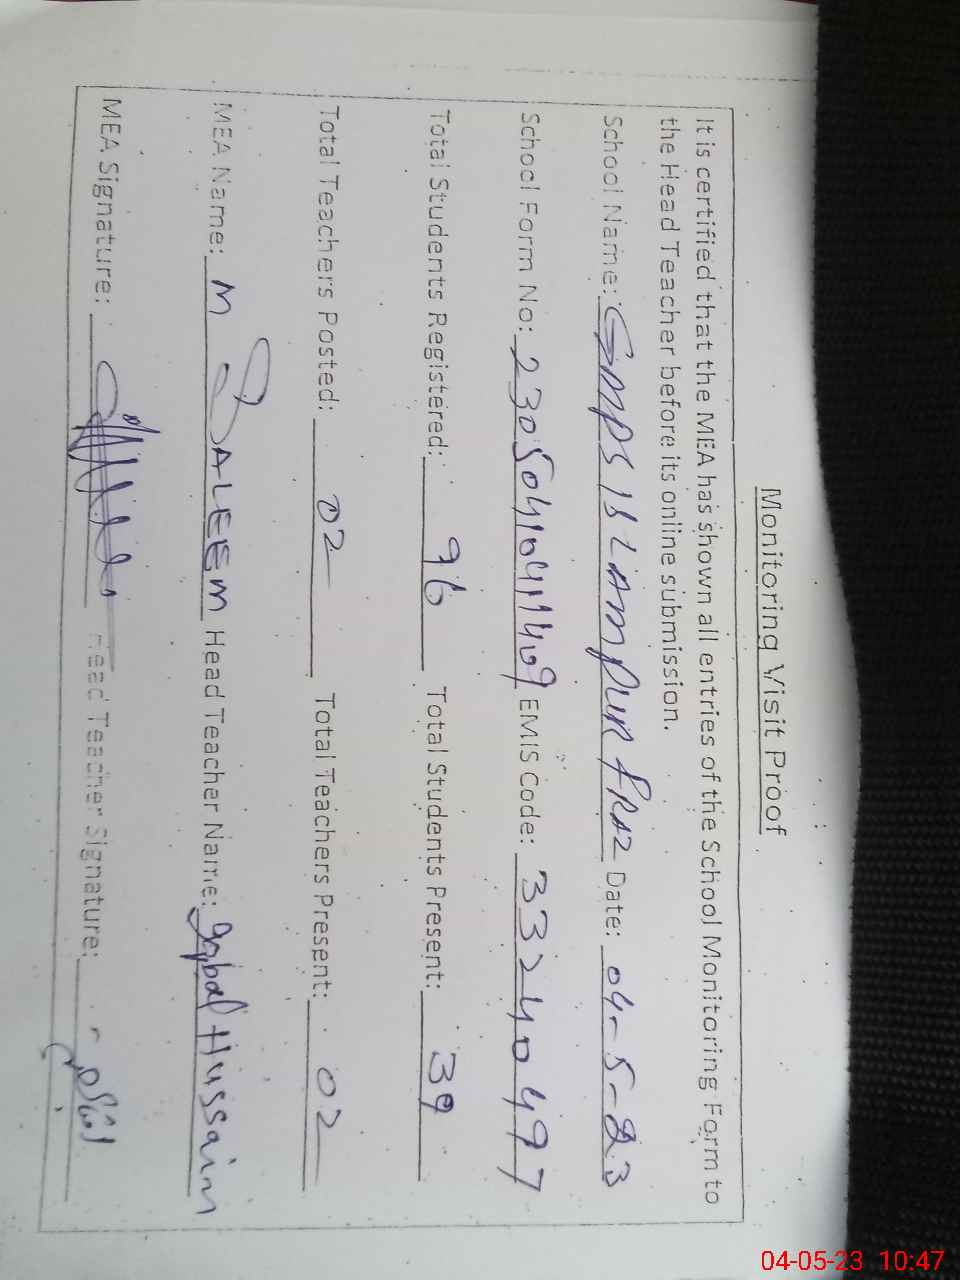 Monitoring Visit Proof
It is certified that the MEA has shown all entries of the School Monitoring Form to
the Head Teacher before its online submission.
School Name: GMPS ISLAMPUR Date: 04-5-23
School Form No: EMIS Code: 33240497
Total Students Registered: 96 Total Students Present: 39
Total Teachers Posted: 02 Total Teachers Present: 02
MEA Name: M SALEEM Head Teacher Name: Iqbal Hussain
MEA Signature: Head Teacher Signature:
04-05-23 10:47